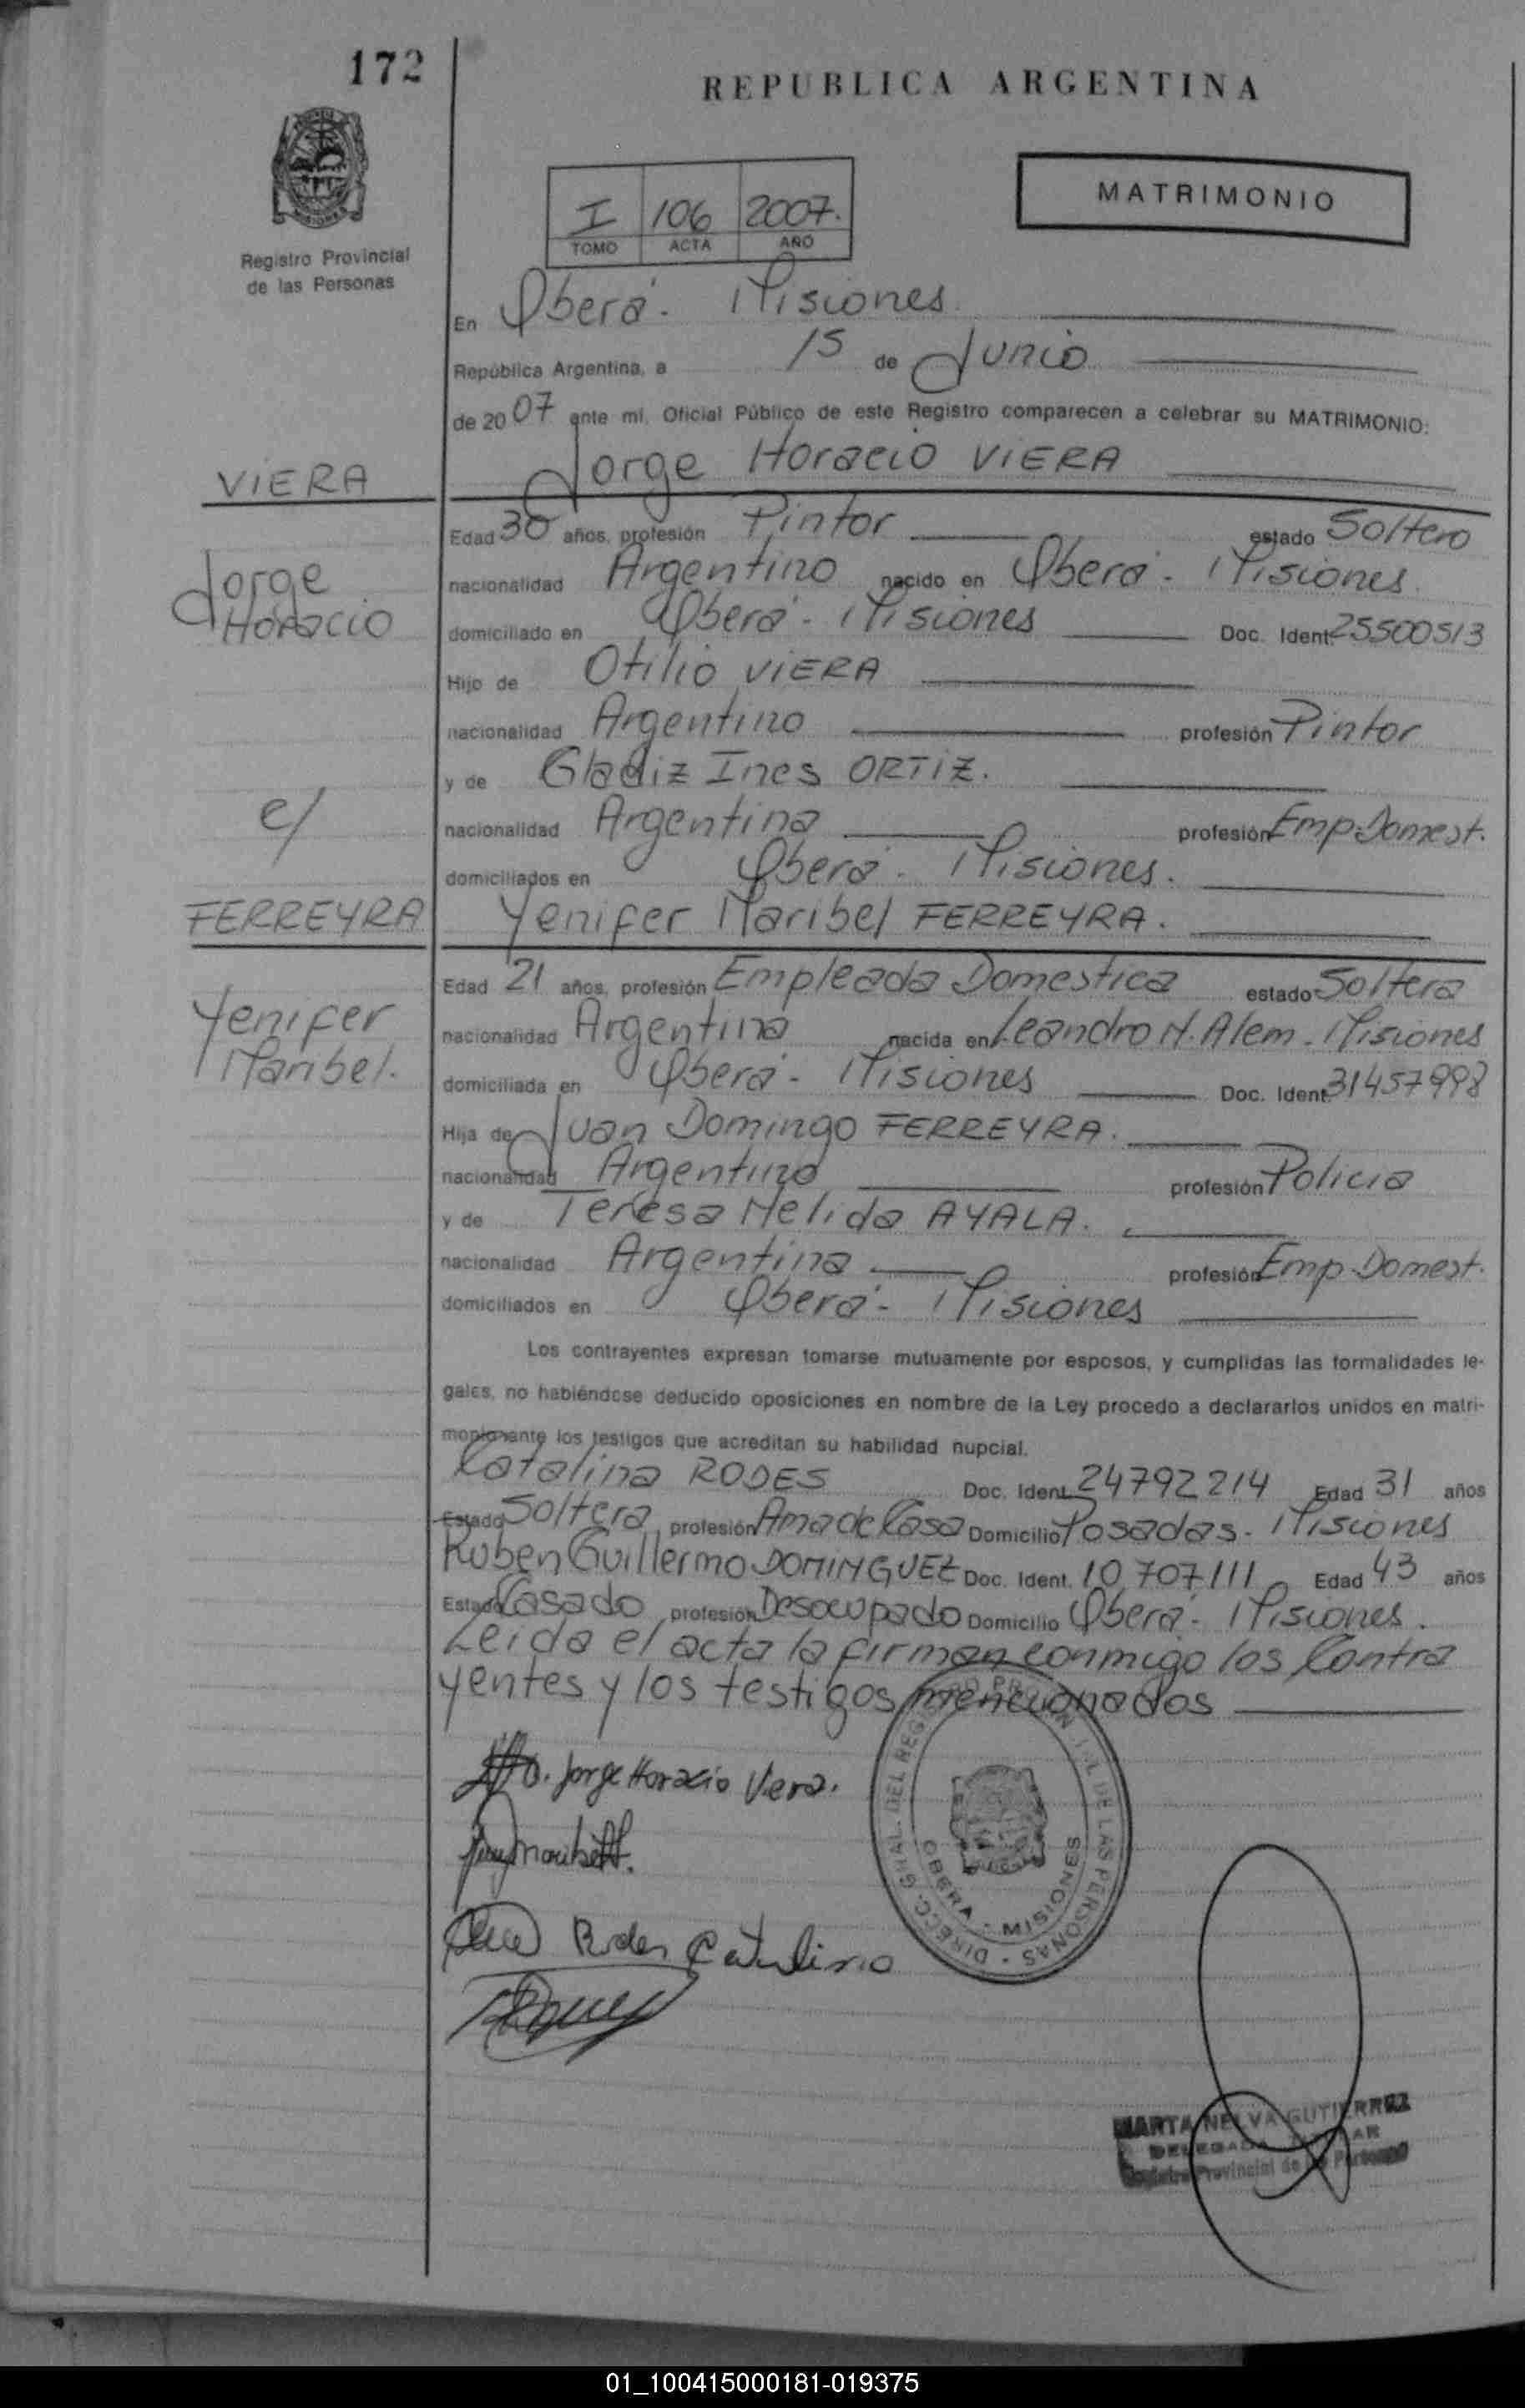 172
REPUBLICA ARGENTINA
MATRIMONIO
I 106 2007.
TOMO ACTA AÑO
Registro Provincial
de las Personas
En Oberá - Misiones
República Argentina, a 15 de Junio
de 2007 ante mí, Oficial Público de este Registro comparecen a celebrar su MATRIMONIO:
VIERA
Jorge Horacio VIERA
Edad 30 años, profesión Pintor estado Soltero
Jorge
Horacio
nacionalidad Argentino nacido en Oberá - Misiones
domiciliado en Oberá - Misiones Doc. Ident. 25500513
Hijo de Otilio VIERA
nacionalidad Argentino profesión Pintor
y de Gladiz Ines ORTIZ.
c/
nacionalidad Argentina profesión Emp. Domest.
domiciliados en Oberá - Misiones.
FERREYRA
Yenifer Maribel FERREYRA.
Edad 21 años, profesión Empleada Domestica estado Soltera
Yenifer
Maribel.
nacionalidad Argentina nacida en Leandro N. Alem - Misiones
domiciliada en Oberá - Misiones Doc. Ident. 31457998
Hija de Juan Domingo FERREYRA.
nacionalidad Argentino profesión Policia
y de Teresa Nelida AYALA.
nacionalidad Argentina profesión Emp Domest.
domiciliados en Oberá - Misiones
Los contrayentes expresan tomarse mutuamente por esposos, y cumplidas las formalidades le-
gales, no habiéndose deducido oposiciones en nombre de la Ley procedo a declararlos unidos en matri-
monio ante los testigos que acreditan su habilidad nupcial.
Catalina RODES Doc. Ident. 24792214 Edad 31 años
Estado Soltera profesión Ama de Casa Domicilio Posadas - Misiones
Ruben Guillermo DOMINGUEZ Doc. Ident. 10707111 Edad 43 años
Estado Casado profesión Desocupado Domicilio Oberá - Misiones.
Leida el acta la firman conmigo los Contra
yentes y los testigos mencionados
Jorge Horacio Vera.
Rodes Catalina
DIRECC. GRAL. DEL REGISTRO PROVINCIAL DE LAS PERSONAS
OBERA - MISIONES
MARTA NELVA GUTIERREZ
DELEGADA TITULAR
Registro Provincial de las Personas
01_100415000181-019375